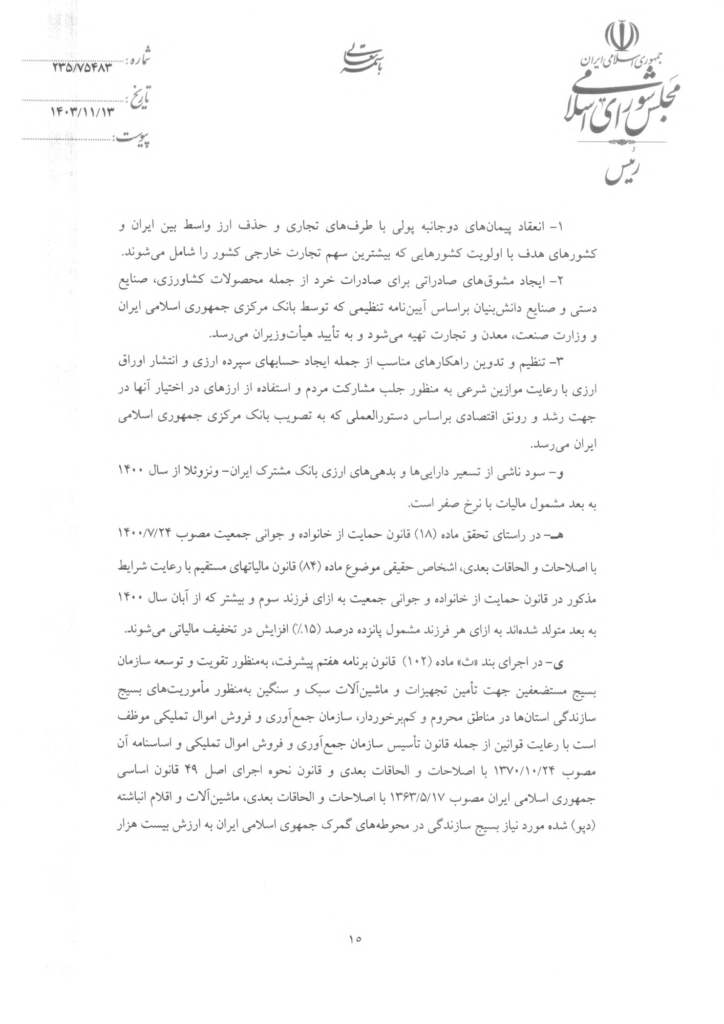 جمهوری اسلامی ایران
مجلس شورای اسلامی
رئیس
باسمه تعالی
شماره: ۲۳۵/۷۵۴۸۳
تاریخ: ۱۴۰۳/۱۱/۱۳
پیوست:
۱- انعقاد پیمان‌های دوجانبه پولی با طرف‌های تجاری و حذف ارز واسط بین ایران و
کشورهای هدف با اولویت کشورهایی که بیشترین سهم تجارت خارجی کشور را شامل می‌شوند.
۲- ایجاد مشوق‌های صادراتی برای صادرات خرد از جمله محصولات کشاورزی، صنایع
دستی و صنایع دانش‌بنیان براساس آیین‌نامه تنظیمی که توسط بانک مرکزی جمهوری اسلامی ایران
و وزارت صنعت، معدن و تجارت تهیه می‌شود و به تأیید هیأت‌وزیران می‌رسد.
۳- تنظیم و تدوین راهکارهای مناسب از جمله ایجاد حسابهای سپرده ارزی و انتشار اوراق
ارزی با رعایت موازین شرعی به منظور جلب مشارکت مردم و استفاده از ارزهای در اختیار آنها در
جهت رشد و رونق اقتصادی براساس دستورالعملی که به تصویب بانک مرکزی جمهوری اسلامی
ایران می‌رسد.
و- سود ناشی از تسعیر دارایی‌ها و بدهی‌های ارزی بانک مشترک ایران- ونزوئلا از سال ۱۴۰۰
به بعد مشمول مالیات با نرخ صفر است.
هـ- در راستای تحقق ماده (۱۸) قانون حمایت از خانواده و جوانی جمعیت مصوب ۱۴۰۰/۷/۲۴
با اصلاحات و الحاقات بعدی، اشخاص حقیقی موضوع ماده (۸۴) قانون مالیاتهای مستقیم با رعایت شرایط
مذکور در قانون حمایت از خانواده و جوانی جمعیت به ازای فرزند سوم و بیشتر که از آبان سال ۱۴۰۰
به بعد متولد شده‌اند به ازای هر فرزند مشمول پانزده درصد (۱۵٪) افزایش در تخفیف مالیاتی می‌شوند.
ی- در اجرای بند «ث» ماده (۱۰۲) قانون برنامه هفتم پیشرفت، به‌منظور تقویت و توسعه سازمان
بسیج مستضعفین جهت تأمین تجهیزات و ماشین‌آلات سبک و سنگین به‌منظور مأموریت‌های بسیج
سازندگی استان‌ها در مناطق محروم و کم‌برخوردار، سازمان جمع‌آوری و فروش اموال تملیکی موظف
است با رعایت قوانین از جمله قانون تأسیس سازمان جمع‌آوری و فروش اموال تملیکی و اساسنامه آن
مصوب ۱۳۷۰/۱۰/۲۴ با اصلاحات و الحاقات بعدی و قانون نحوه اجرای اصل ۴۹ قانون اساسی
جمهوری اسلامی ایران مصوب ۱۳۶۳/۵/۱۷ با اصلاحات و الحاقات بعدی، ماشین‌آلات و اقلام انباشته
(دپو) شده مورد نیاز بسیج سازندگی در محوطه‌های گمرک جمهوی اسلامی ایران به ارزش بیست هزار
۱۵